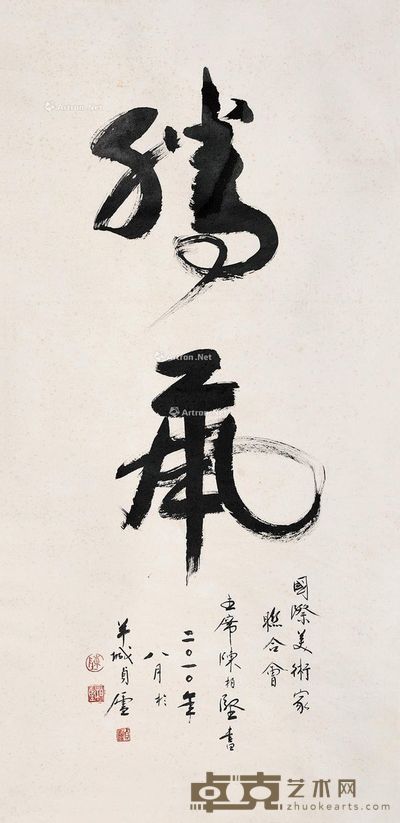 騰
飛
國際美術家
聯合會
主席陳柏堅書
二〇一〇年
八月於
羊城貞廬
Artron.Net
Artron.Net
Artron.Net
卓克艺术网
zhuokearts.com